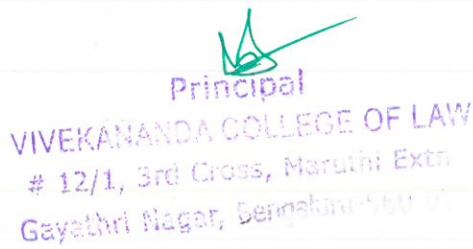 Principal
VIVEKANANDA COLLEGE OF LAW
# 12/1, 3rd Cross, Maruthi Extn
Gayathri Nagar, Bengaluru-560 0